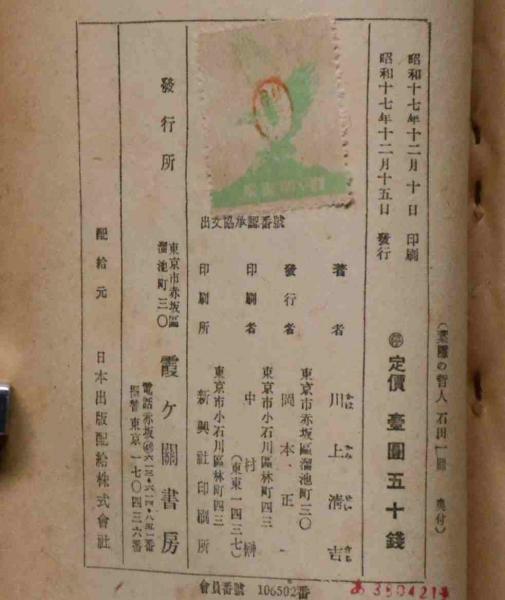 昭和十七年十二月十日 印刷
昭和十七年十二月十五日 發行
の哲人 石田一 奥付)
㊞ 定價 壹圓五十錢
著者 川上淸吉
かは かみ せい きち
東京市赤坂區溜池町三〇
發行者 岡本正一
東京市小石川區林町四三
印刷者 中村榊
(東東一四三七)
東京市小石川區林町四三
印刷所 新興社印刷所
出文協承認番號
發行所
東京市赤坂區
溜池町三〇
霞ケ關書房
電話赤坂
振替東京一七〇四三六番
配給元 日本出版配給株式會社
會員番號 106502番